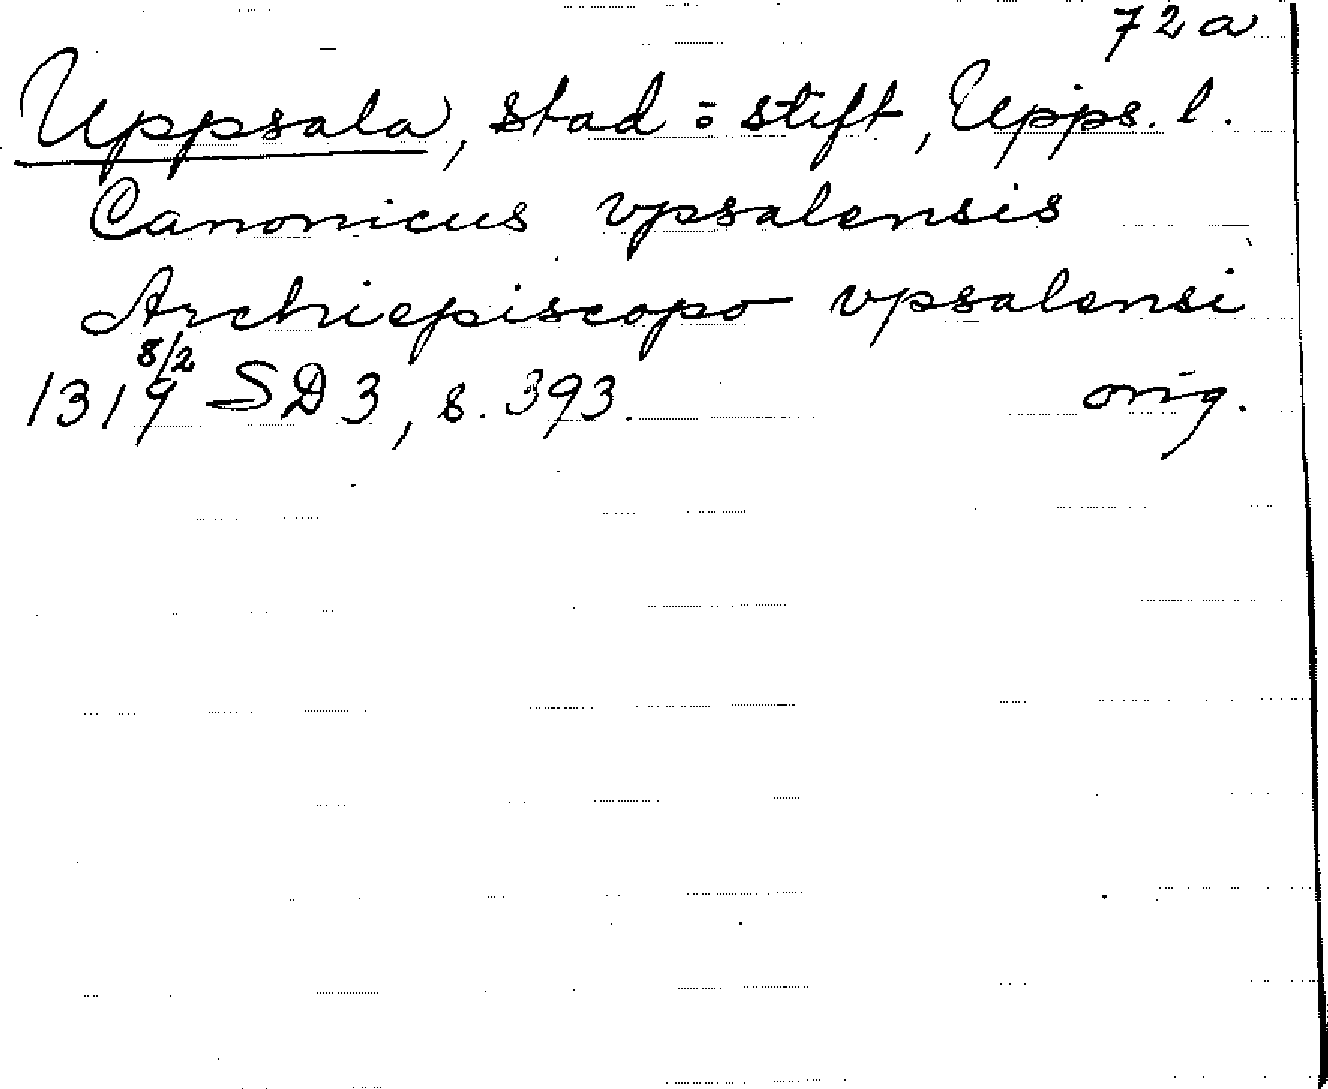 72a
Uppsala, stad o stift, Upps. l.
Canonicus vpsalensis
Archiepiscopo vpsalensi
8/2
1319 SD 3, s. 393. orig.